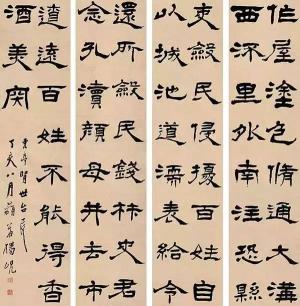 作屋塗色脩通大溝
西流里外南注恐縣
吏斂民侵擾百姓自
以城池道濡表給令
還所斂民錢材史君
念孔瀆顏母井去市
遼遠百姓不能得香
酒美肉
賢世台屬
丁亥八月藐翁楊峴